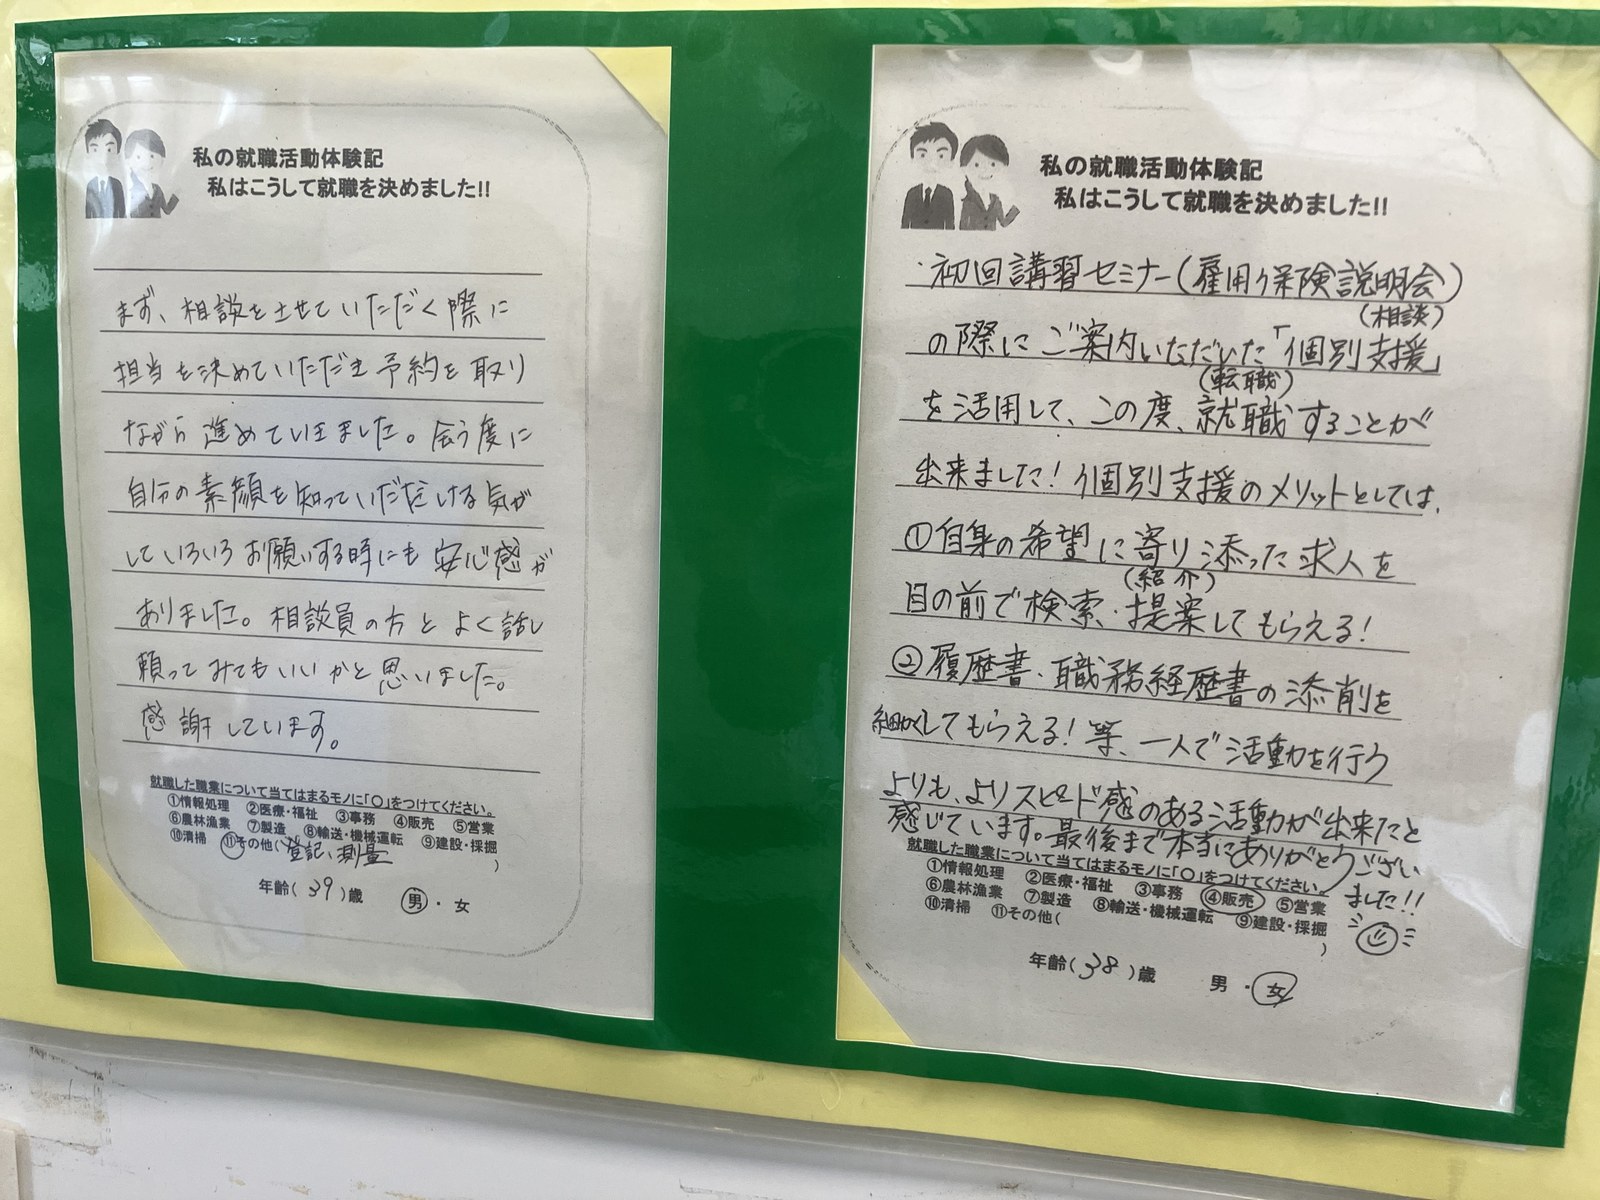 私の就職活動体験記
私はこうして就職を決めました!!
まず、相談をさせていただく際に
担当を決めていただき予約を取り
ながら進めていきました。会う度に
自分の素顔を知っていただだける気が
していろいろお願いする時にも安心感が
ありました。相談員の方とよく話し
頼ってみてもいいかと思いました。
感謝しています。
就職した職業について当てはまるモノに「○」をつけてください。
①情報処理 ②医療・福祉 ③事務 ④販売 ⑤営業
⑥農林漁業 ⑦製造 ⑧輸送・機械運転 ⑨建設・採掘
⑩清掃 ⑪その他(登記、測量)
年齢(39)歳 男・女
私の就職活動体験記
私はこうして就職を決めました!!
・初回講習セミナー(雇用保険説明会)
(相談)
の際にご案内いただいた「個別支援」
(転職)
を活用して、この度、就職することが
出来ました!個別支援のメリットとしては、
①自身の希望に寄り添った求人を
(紹介)
目の前で検索・提案してもらえる!
②履歴書・職務経歴書の添削を
細かくしてもらえる!等、一人で活動を行う
よりも、よりスピード感のある活動が出来たと
感じています。最後まで本当にありがとうござい
ました!!
就職した職業について当てはまるモノに「○」をつけてください。
①情報処理 ②医療・福祉 ③事務 ④販売 ⑤営業
⑥農林漁業 ⑦製造 ⑧輸送・機械運転 ⑨建設・採掘
⑩清掃 ⑪その他( )
年齢(38)歳 男・女